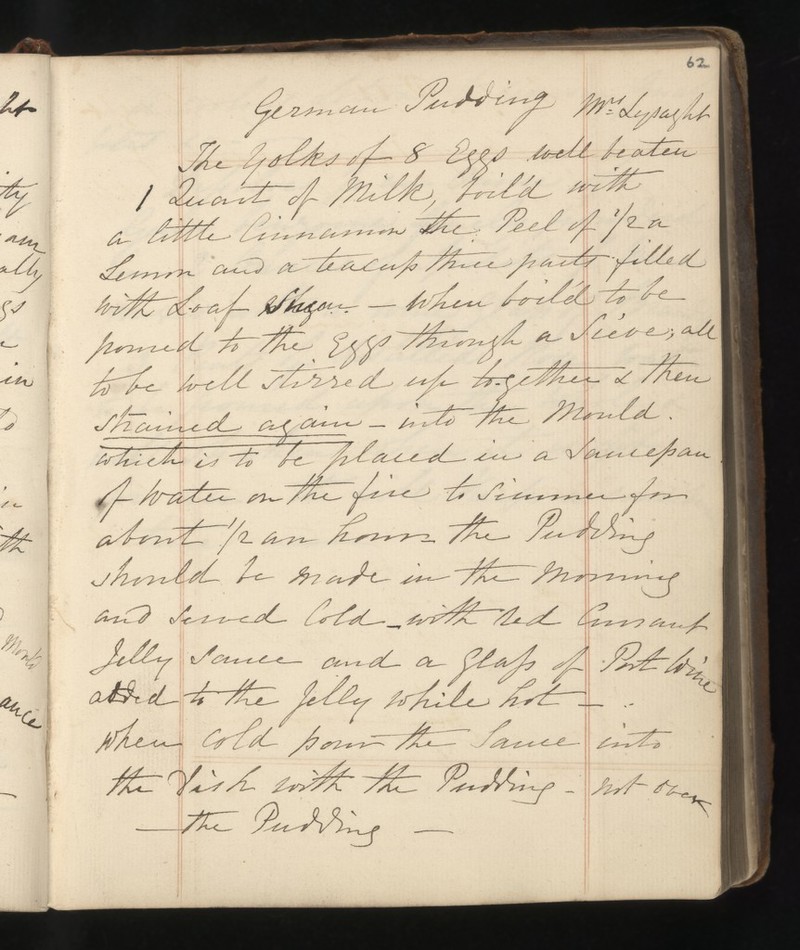 62
German Pudding Mrs Lysaght
The Yolks of 8 Eggs well beaten
1 Quart of Milk, boil'd with
a little Cinnamon the Peel of 1/2 a
Lemon and a teacup three parts filled
with Loaf Sugar. – When boil'd to be
poured to the Eggs through a Sieve, all
to be well stirred up together & then
strained again – into the Mould.
which is to be placed in a Saucepan
of Water on the fire to Simmer for
about 1/2 an hour – the Pudding
should be made in the Morning
and served Cold – with red Currant
Jelly Sauce and a Glass of Port Wine
added to the Jelly while hot –
When cold pour the Sauce into
the Dish with the Pudding – not over
– the Pudding –